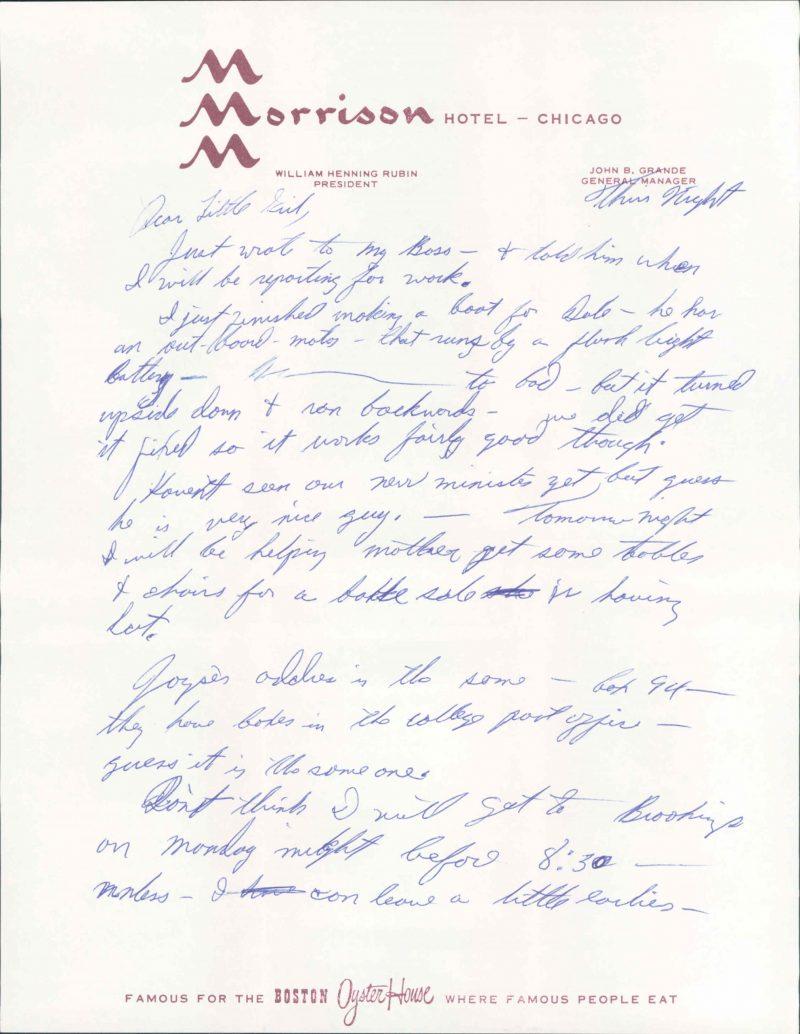 M
Morrison HOTEL – CHICAGO
M
WILLIAM HENNING RUBIN
PRESIDENT
JOHN B. GRANDE
GENERAL MANAGER
Thurs Night
Dear Little Girl,
Just wrote to my Boss – & told him when
I will be reporting for work.
I just finished making a boat for Dale – he has
an out-board-motor – that runs by a flash light
battery – to bad – but it turned
upside down & ran backwards – we did get
it fixed so it works fairly good though.
Haven't seen our new minister yet but guess
he is very nice guy. – Tomorrow night
I will be helping mother get some tables
& chairs for a bake sale having
Sat.
Joyce's address is the same – box 94 –
they have boxes in the college post office –
guess it is the same one.
Don't think I will get to Brookings
on Monday night before 8:30 –
unless – I can leave a little earlier –
FAMOUS FOR THE BOSTON Oyster House WHERE FAMOUS PEOPLE EAT